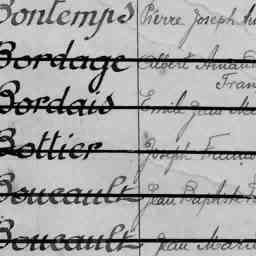 Bontemps Pierre Joseph
Bordage Albert Arnaud
Fran
Bordais Emile Jean Ma
Bottier Joseph Franço
Boucault Jean Baptiste
Boucault Jean Marie